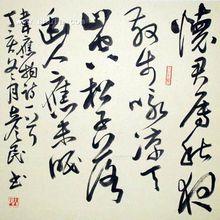 懷君屬秋夜
散步咏凉天
山空松子落
幽人應未眠
韋應物詩一首
丁亥冬月彦民書